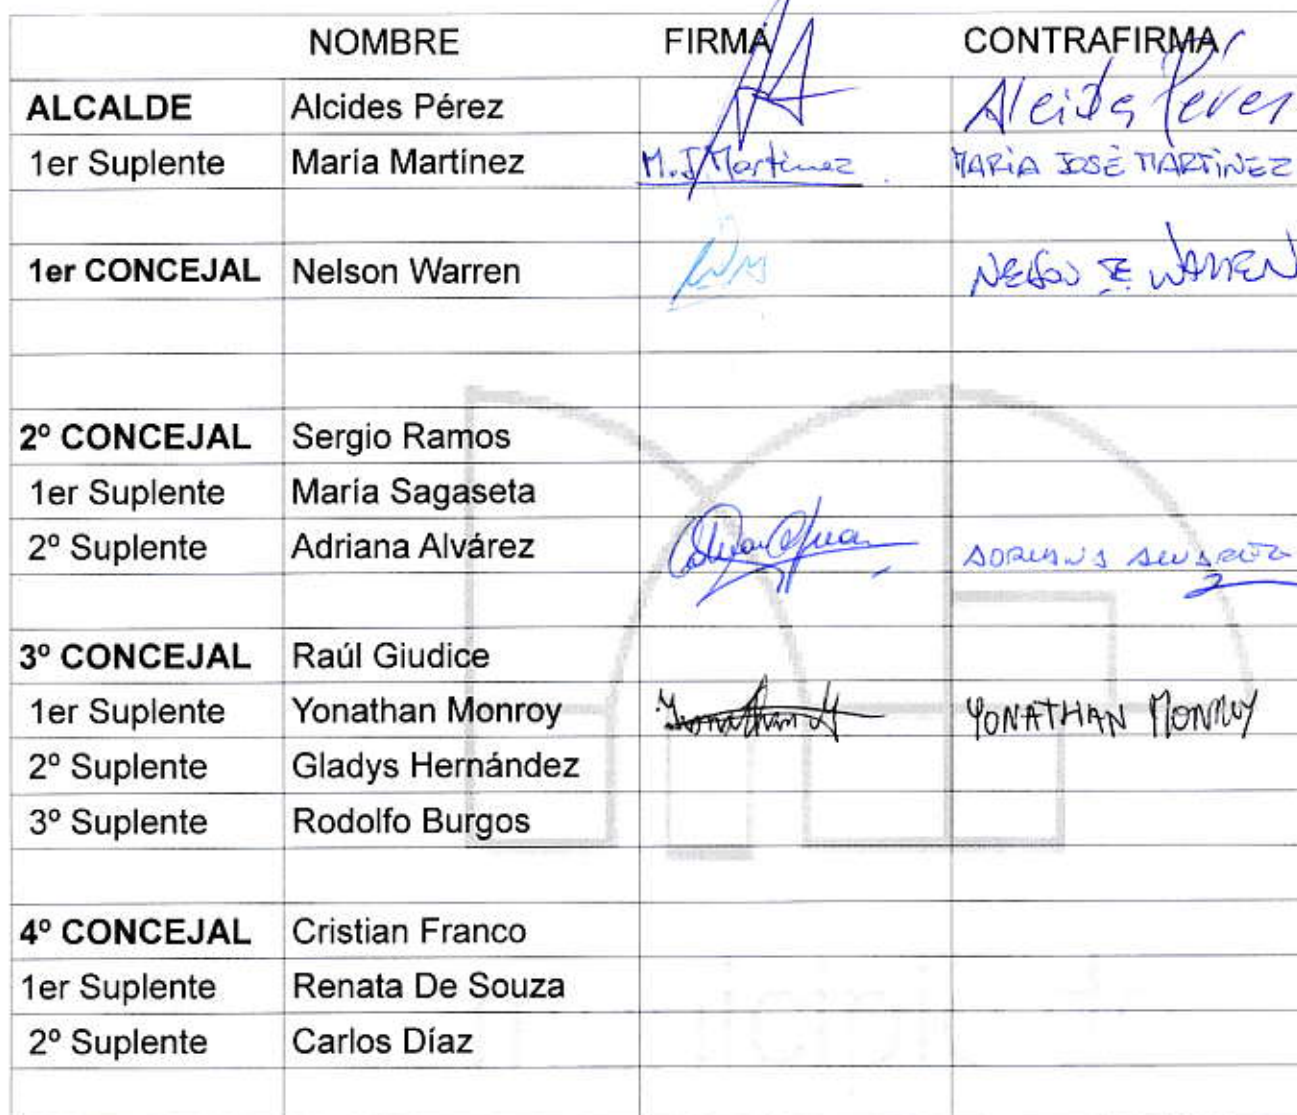 NOMBRE FIRMA CONTRAFIRMA
ALCALDE Alcides Pérez Alcides Pérez
1er Suplente María Martínez M.J Martinez MARÍA JOSÉ MARTÍNEZ
1er CONCEJAL Nelson Warren NELSON E. WARREN
2º CONCEJAL Sergio Ramos
1er Suplente María Sagaseta
2º Suplente Adriana Alvárez ADRIANA ALVAREZ
3º CONCEJAL Raúl Giudice
1er Suplente Yonathan Monroy Yonathan M YONATHAN MONROY
2º Suplente Gladys Hernández
3º Suplente Rodolfo Burgos
4º CONCEJAL Cristian Franco
1er Suplente Renata De Souza
2º Suplente Carlos Díaz